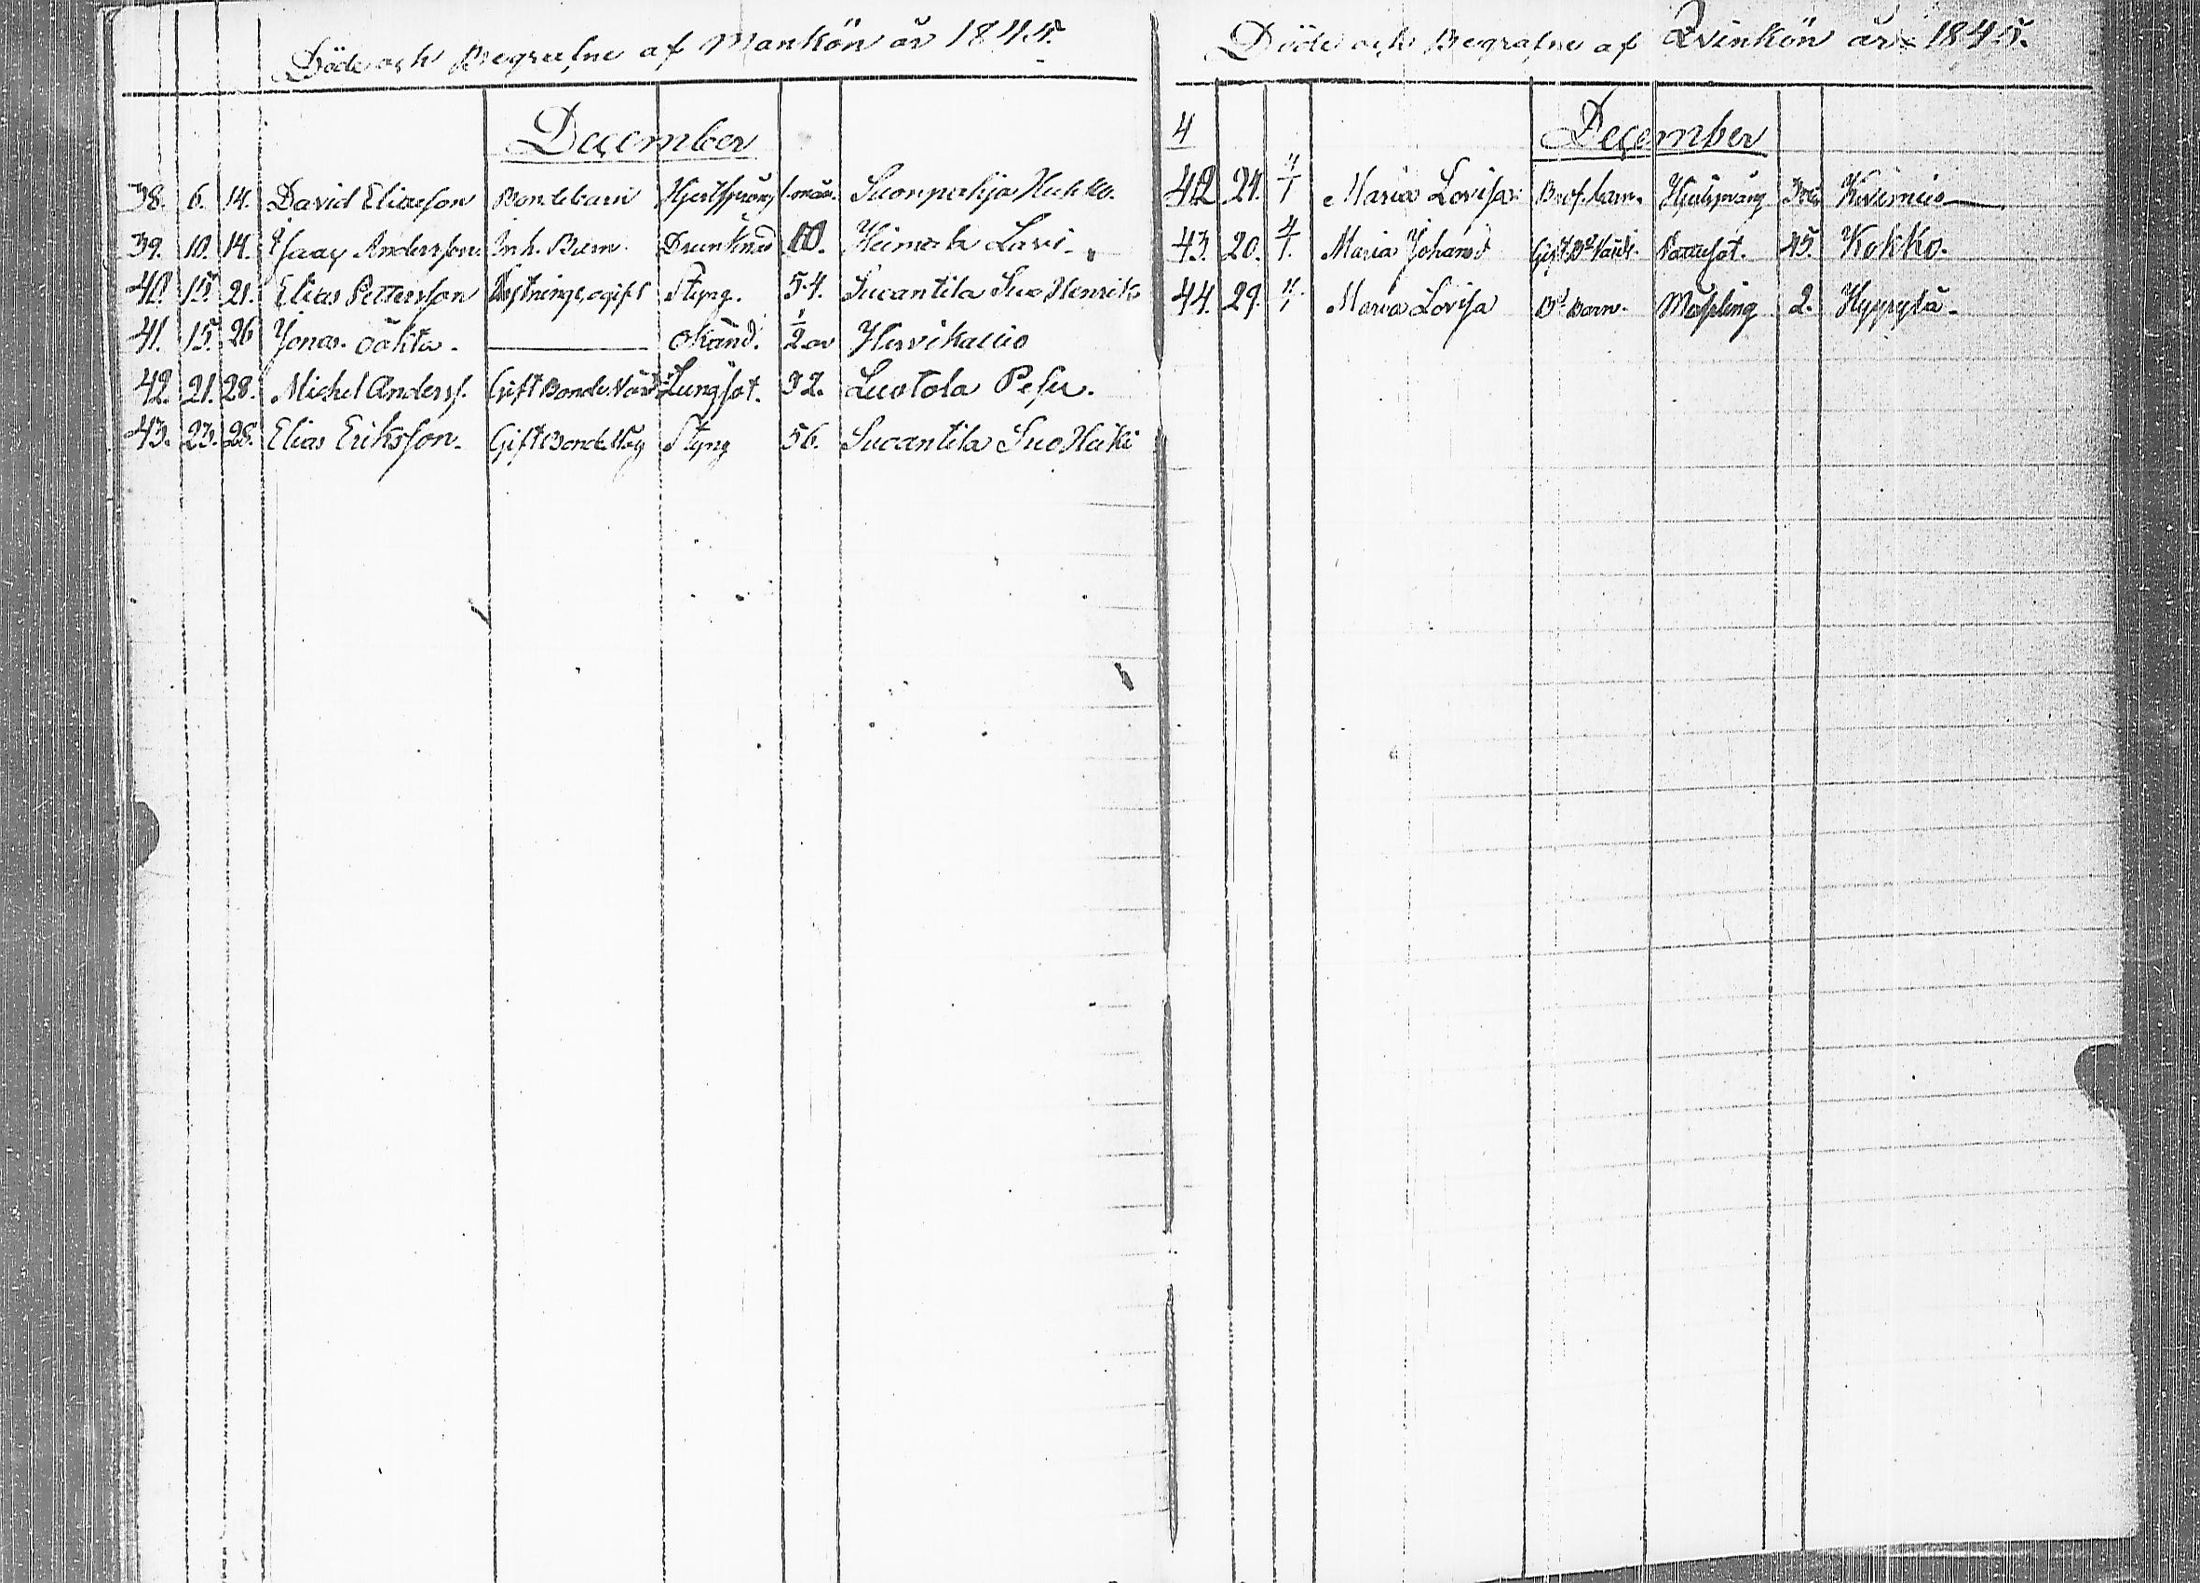 Döde och Begrafne af Mankön år 1845.
December
38. 6. 14. David Eliasson Bondebarn Hjertsprång Suonperkjo Huhko.
39. 10. 14. Isaac Andersson Inh. Barn Drunknad 10. Heimola Lavi.
40. 15. 21. Elias Pettersson ogift Styng. 54. Sucantila Suo Henrik
41. 15. 26 Jonas oäkta. okänd. 1/2 år Hirvikallio
42. 21. 28. Michel Anderss. Gift Bonde Lungsot. 32. Luotola Pesu.
43. 23. 28. Elias Eriksson. Gift Bonde Styng 56. Sucantila Suo Heiki
Döde och Begrafne af Qvinkön år 1845.
4
December
42 21. 4/1 Maria Lovisa barn. Hjertsprång
43. 20. 4/1. Maria Johansd Gift 45. Kokko.
44. 29. 4/1 Maria Lovisa Bd Barn. Mässling 2. Hyppylä.